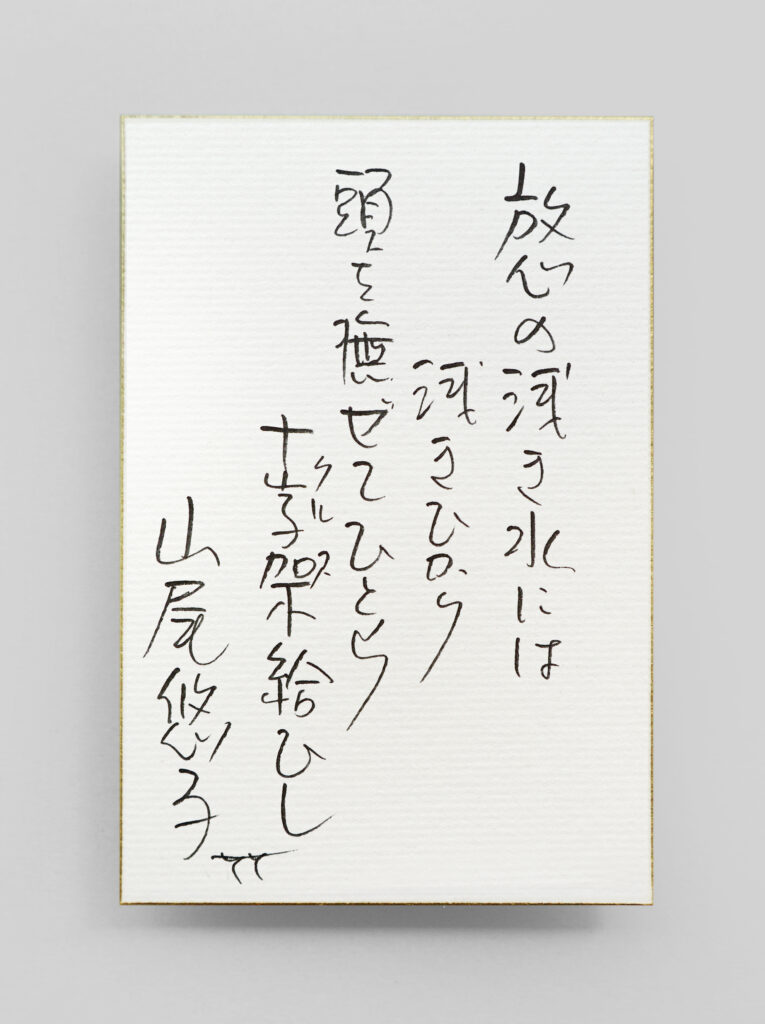 放心の浅き水には
浅きひかり
頭を撫ぜてひとり
クルス
十字架給ひし
山尾悠子